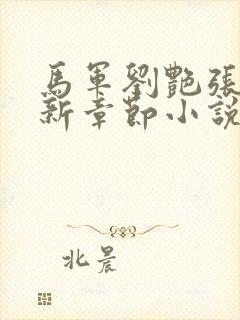 馬軍劉艷張
新章節小說
北晨